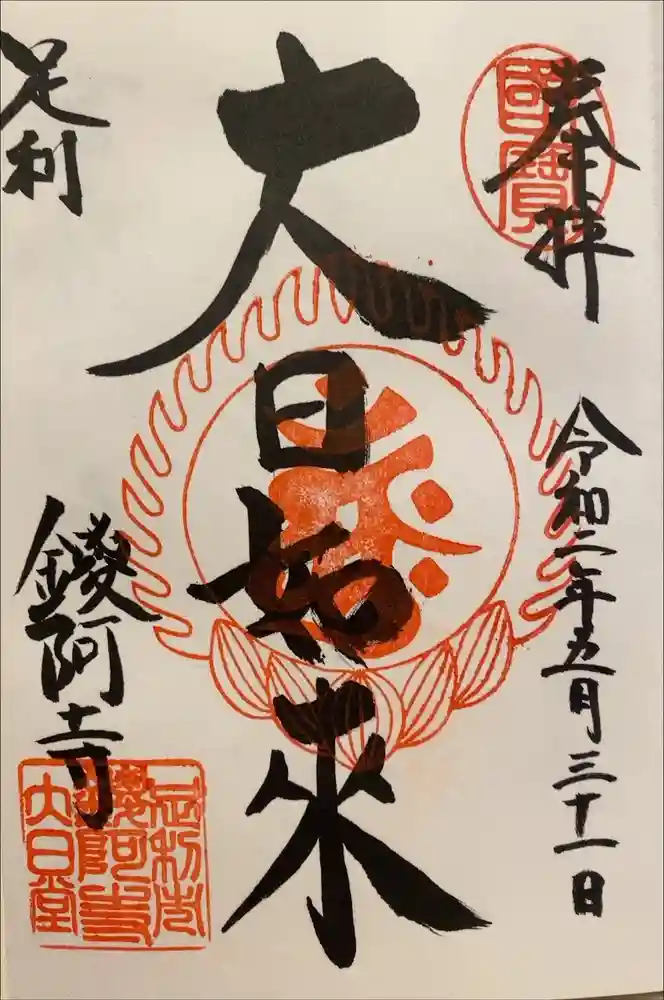 奉拝
國寶
令和二年五月三十一日
大日如来
足利
鑁阿寺
足利市
鑁阿寺
大日堂